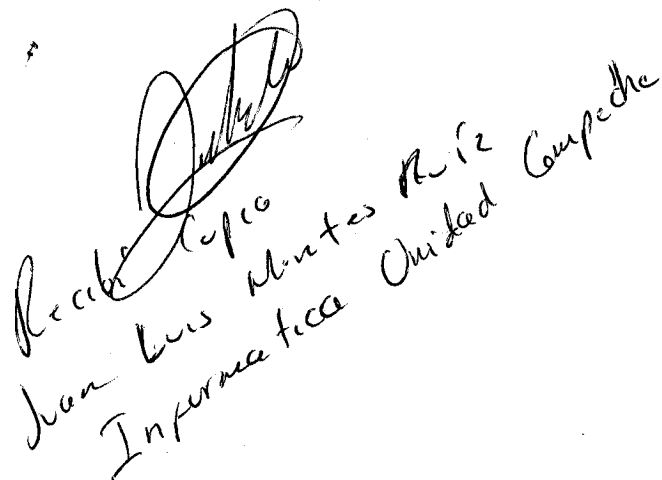 Recibí Copia
Juan Luis Montes Ruíz
Informatica Unidad Campeche